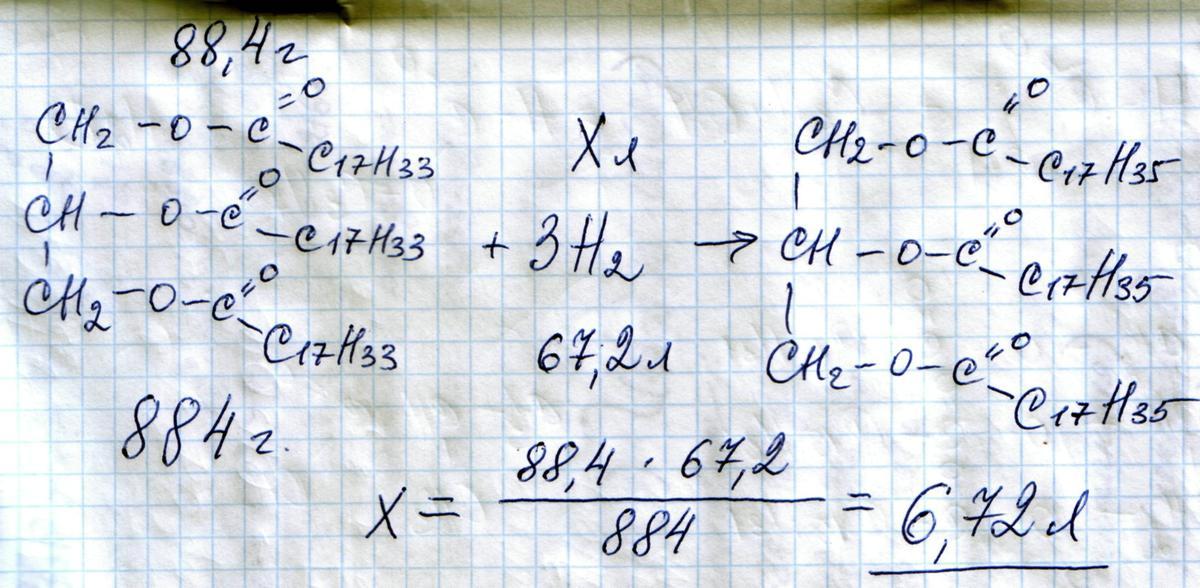 88,4 г
CH₂ – O – C = O – C₁₇H₃₃
CH – O – C = O – C₁₇H₃₃
CH₂ – O – C = O – C₁₇H₃₃
884 г.
X л
+ 3H₂ →
67,2 л
CH₂ – O – C = O – C₁₇H₃₅
CH – O – C = O – C₁₇H₃₅
CH₂ – O – C = O – C₁₇H₃₅
X = 88,4 · 67,2 / 884 = 6,72 л